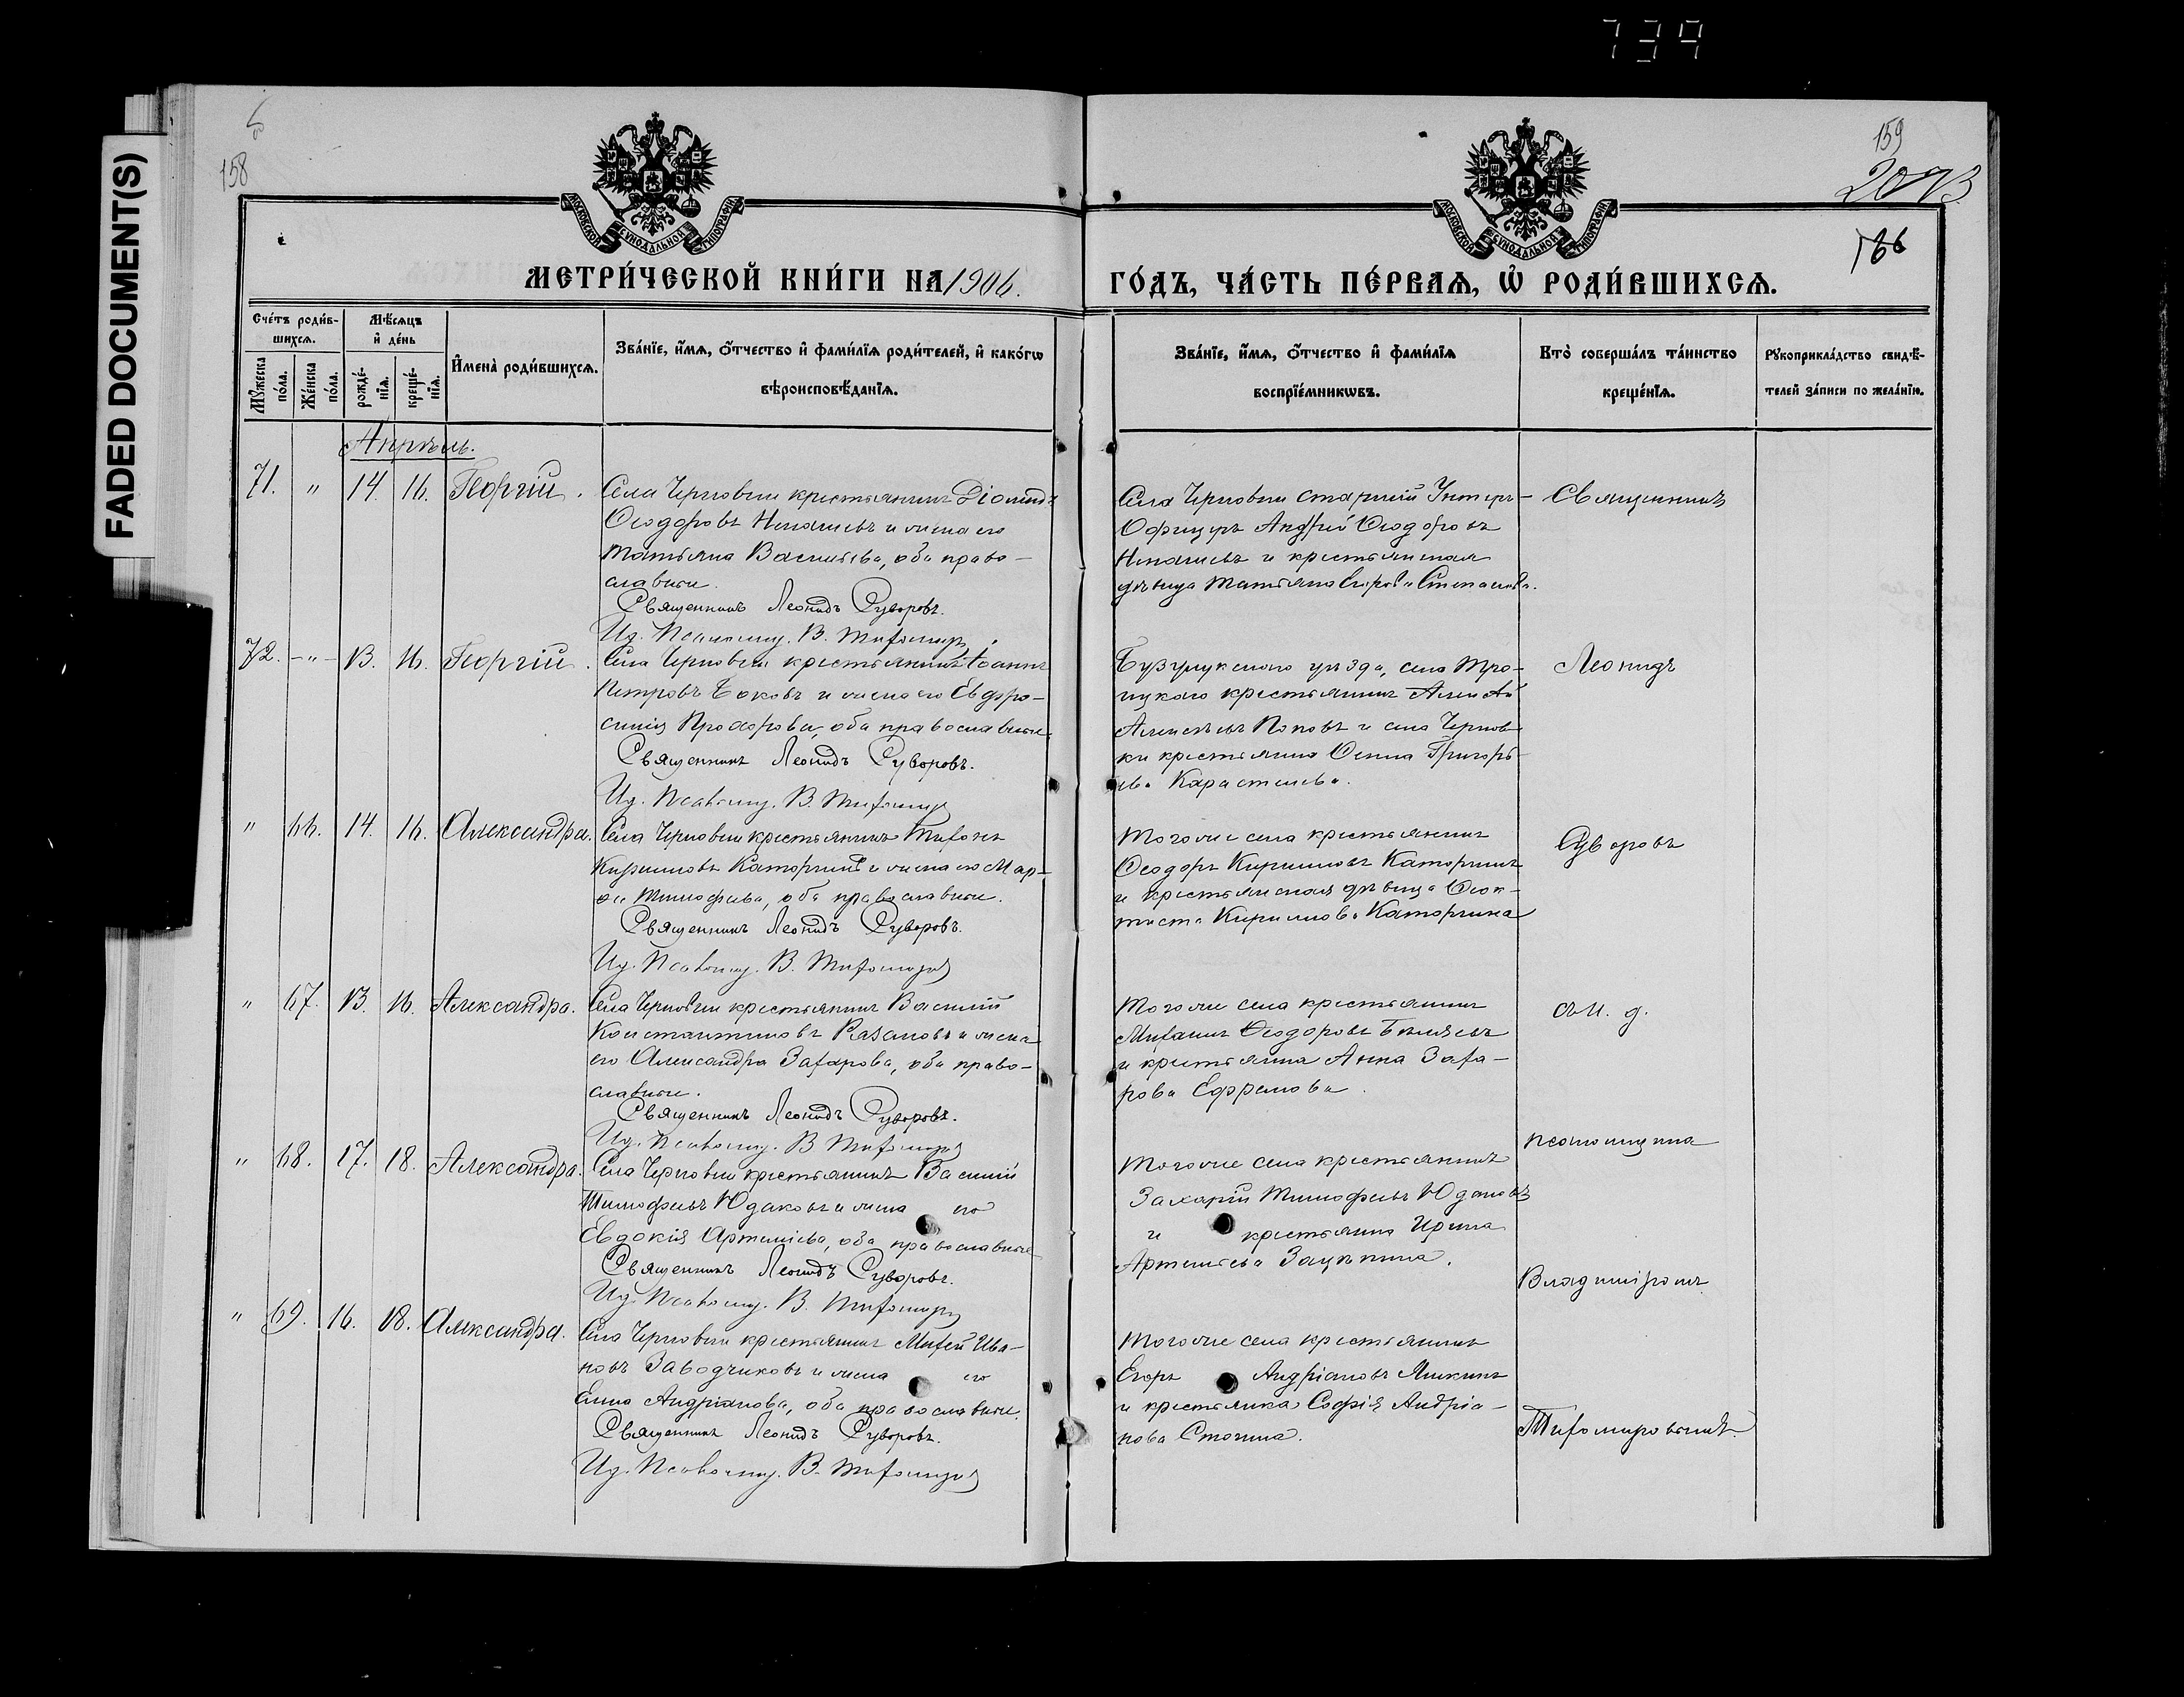 739
FADED DOCUMENT(S)
158
159
МОСКОВСКОЙ СѴНОДАЛЬНОЙ ТИПОГРАФИИ
МОСКОВСКОЙ СѴНОДАЛЬНОЙ ТИПОГРАФИИ
МЕТРИ́ЧЕСКОЙ КНИ́ГИ НА 1906.
ГО́ДЪ, ЧА́СТЬ ПЕ́РВАѦ, Ѡ҆ РОДИ́ВШИХСѦ.
Сче́тъ роди́в-
шихсѧ.
Мꙋ́жеска по́ла.
Же́нска по́ла.
Мѣ́сѧцъ
и҆ де́нь
рожде́-нїѧ.
креще́-нїѧ.
И҆мена̀ роди́вшихсѧ.
Зва́нїе, и҆́мѧ, ѻ҆́тчество и҆ фами́лїѧ роди́телей, и҆ како́гѡ
вѣроисповѣ́данїѧ.
Зва́нїе, и҆́мѧ, ѻ҆́тчество и҆ фами́лїѧ
воспрїе́мникѡвъ.
Кто̀ соверша́лъ та́инство
креще́нїѧ.
Рꙋкоприкла́дство свидѣ́-
телей за́писи по жела́нїю.
Апрѣль.
71. " 14. 16. Георгій.
Села Черновки крестьянинъ Діомидъ
Ѳеодоровъ и жена его
Татьяна Васильева, оба право-
славные.
Священникъ Леонидъ Суворовъ.
Ид. Псаломщ. В. Тихомировъ
Села Черновки старшій Унтеръ-
Офицеръ Андрей Ѳеодоровъ
и крестьянская
дѣвица Татьяна Степанова.
Священникъ
72. -"- 13. 16. Георгій.
Села Черновки крестьянинъ Іоаннъ
Петровъ Боковъ и жена его Евфро-
синія Прохорова, оба православные.
Священникъ Леонидъ Суворовъ.
Ид. Псаломщ. В. Тихомировъ
Бузулукскаго уѣзда, села Тро-
ицкаго крестьянинъ Алексѣй
Алексѣевъ Поповъ и села Чернов-
ки крестьянка Григорь-
ева
Леонидъ
" 66. 14. 16. Александра.
Села Черновки крестьянинъ Тихонъ
Кирилловъ Каторгинъ и жена его Мар-
ѳа Тимофеева, оба православные.
Священникъ Леонидъ Суворовъ.
Ид. Псаломщ. В. Тихомировъ
Тогоже села крестьянинъ
Ѳеодоръ Кирилловъ Каторгинъ
и крестьянская дѣвица Ѳеок-
тиста Кириллова Каторгина
Суворовъ
" 67. 13. 16. Александра.
Села Черновки крестьянинъ Василій
Константиновъ и жена
его Александра Захарова, оба право-
славные.
Священникъ Леонидъ Суворовъ.
Ид. Псаломщ. В. Тихомировъ
Тогоже села крестьянинъ
Михаилъ Ѳеодоровъ Бѣляевъ
и крестьянка Анна Заха-
рова Ефремова.
съ И. д.
" 68. 17. 18. Александра.
Села Черновки крестьянинъ Василій
Тимофеевъ Юдаковъ и жена его
Евдокія Артемьева, оба православные
Священникъ Леонидъ Суворовъ.
Ид. Псаломщ. В. Тихомировъ
псаломщика
Тогоже села крестьянинъ
Захарій Тимофеевъ Юдаковъ
и крестьянка Ирина
Артемьева Зацепина.
Владиміромъ
" 69. 16. 18. Александра.
Села Черновки крестьянинъ Ива-
новъ Заводчиковъ и жена его
Елена Андріанова, оба православные.
Священникъ Леонидъ Суворовъ.
Ид. Псаломщ. В. Тихомировъ
Тогоже села крестьянинъ
Егоръ Андріановъ
и крестьянка Софія Андріа-
нова
Тихомировымъ.